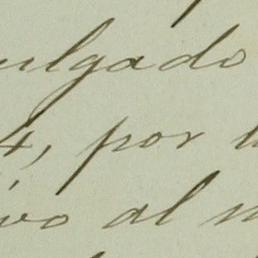 ulgado
4, por l
ivo al n